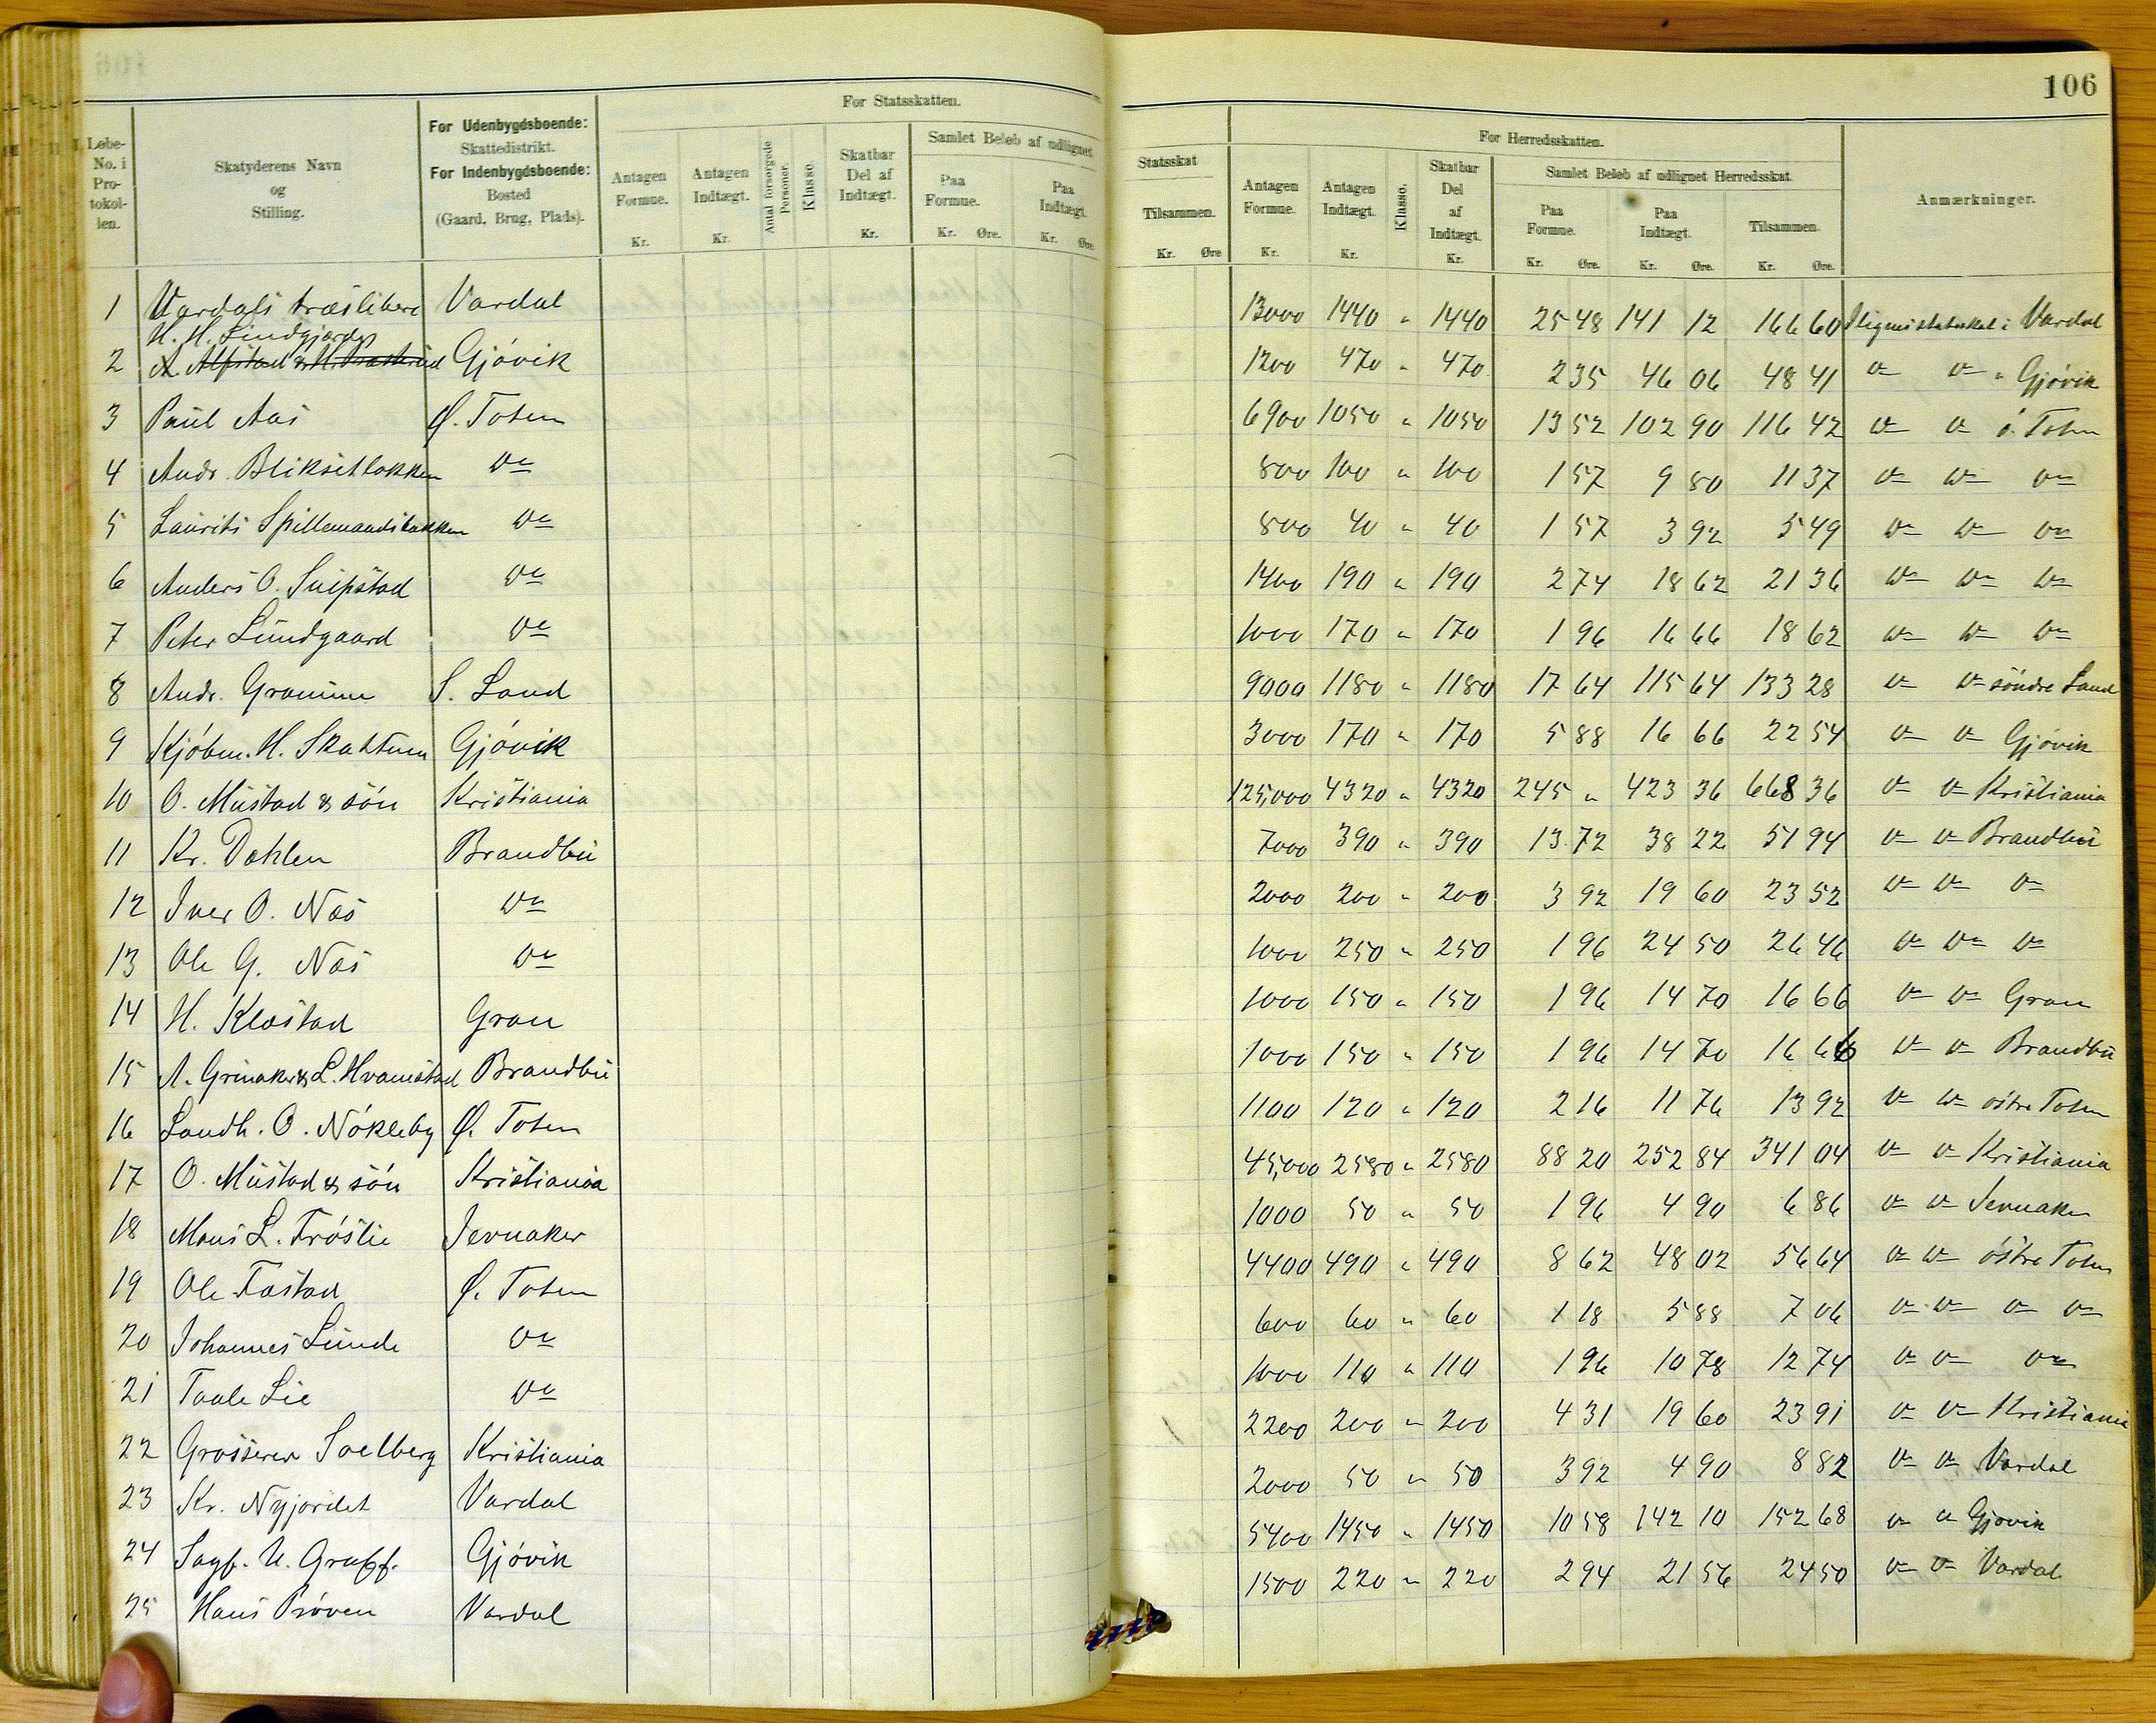 106
Løbe-No. i Pro-tokol-len.
Skatyderens Navn og Stilling.
For Udenbygdsboende: Skattedistrikt. For Indenbygdsboende: Bosted (Gaard, Brug, Plads).
For Statsskatten.
Antagen Formue. Kr.
Antagen Indtægt. Kr.
Antal forsørgede Personer.
Klasse.
Skatbar Del af Indtægt. Kr.
Samlet Beløb af udlignet
Paa Formue. Kr. Øre.
Paa Indtægt. Kr. Øre.
Statsskat
Tilsammen. Kr. Øre
For Herredsskatten.
Antagen Formue. Kr.
Antagen Indtægt. Kr.
Klasse.
Skatbar Del af Indtægt. Kr.
Samlet Beløb af udlignet Herredsskat.
Paa Formue. Kr. Øre.
Paa Indtægt. Kr. Øre.
Tilsammen. Kr. Øre.
Anmærkninger.
1 Vardals træsliberi Vardal 13000 1440 " 1440 25 48 141 12 166 60 Vardal
H. H. Lindgjordet
2 Gjövik 1200 470 " 470 2 35 46 06 48 41 do do " Gjövik
3 Paul Aas Ø. Toten 6900 1050 " 1050 13 52 102 90 116 42 do do ö. Toten
4 Andr. Bliksetbakken do 800 100 " 100 1 57 9 80 11 37 do do do
5 Laurits Spillemandsbakken do 800 40 " 40 1 57 3 92 5 49 do do do
6 Anders O. Snipstad do 1400 190 " 190 2 74 18 62 21 36 do do do
7 Peter Lundgaard do 1000 170 " 170 1 96 16 66 18 62 do do do
8 Andr. Granum S. Land 9000 1180 " 1180 17 64 115 64 133 28 do do söndre Land
9 Kjöbm. H. Skattum Gjövik 3000 170 " 170 5 88 16 66 22 54 do do Gjövik
10 O. Mustad & sön Kristiania 125,000 4320 " 4320 245 " 423 36 668 36 do do Kristiania
11 Kr. Dahlen Brandbu 7000 390 " 390 13 72 38 22 51 94 do do Brandbu
12 Iver O. Næs do 2000 200 " 200 3 92 19 60 23 52 do do do
13 Ole G. Næs do 1000 250 " 250 1 96 24 50 26 46 do do do
14 H. Klæstad Gran 1000 150 " 150 1 96 14 70 16 66 do do Gran
15 A. Grinaker & L. Hvamstad Brandbu 1000 150 " 150 1 96 14 70 16 66 do do Brandbu
16 Landh. O. Nökleby Ø. Toten 1100 120 " 120 2 16 11 76 13 92 do do östre Toten
17 O. Mustad & sön Kristiania 45,000 2580 " 2580 88 20 252 84 341 04 do do Kristiania
18 Mons L. Fröslie Jevnaker 1000 50 " 50 1 96 4 90 6 86 do do Jevnaker
19 Ole Fastad Ø. Toten 4400 490 " 490 8 62 48 02 56 64 do do östre Toten
20 Johannes Lunde do 600 60 " 60 1 18 5 88 7 06 do do do do
21 Taale Lie do 1000 110 " 110 1 96 10 78 12 74 do do do
22 Grosserer Soelberg Kristiania 2200 200 " 200 4 31 19 60 23 91 do do Kristiania
23 Kr. Nyjordet Vardal 2000 50 " 50 3 92 4 90 8 82 do do Vardal
24 Sagf. U. Graff. Gjövik 5400 1450 " 1450 10 58 142 10 152 68 do do Gjövik
25 Hans Pröven Vardal 1500 220 " 220 2 94 21 56 24 50 do do Vardal